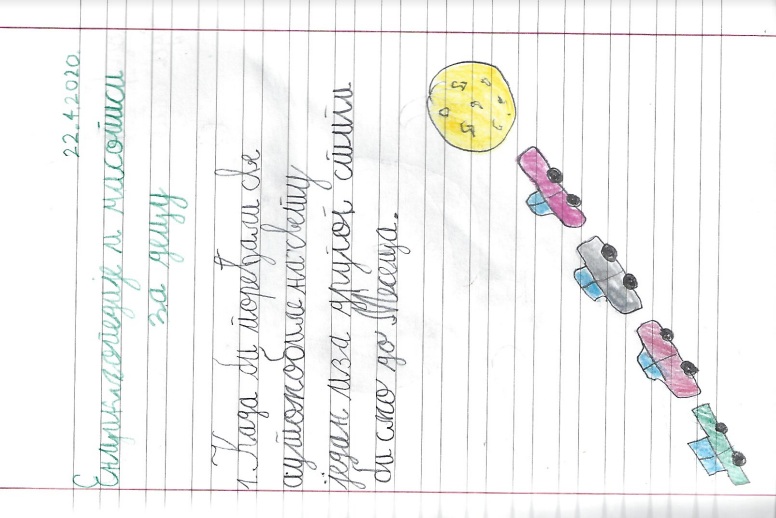 22.4.2020.
Енциклопедије и часописи
за децу
1. Када би поређали све
аутомобиле на свету
један иза другог стигли
би смо до Месеца.